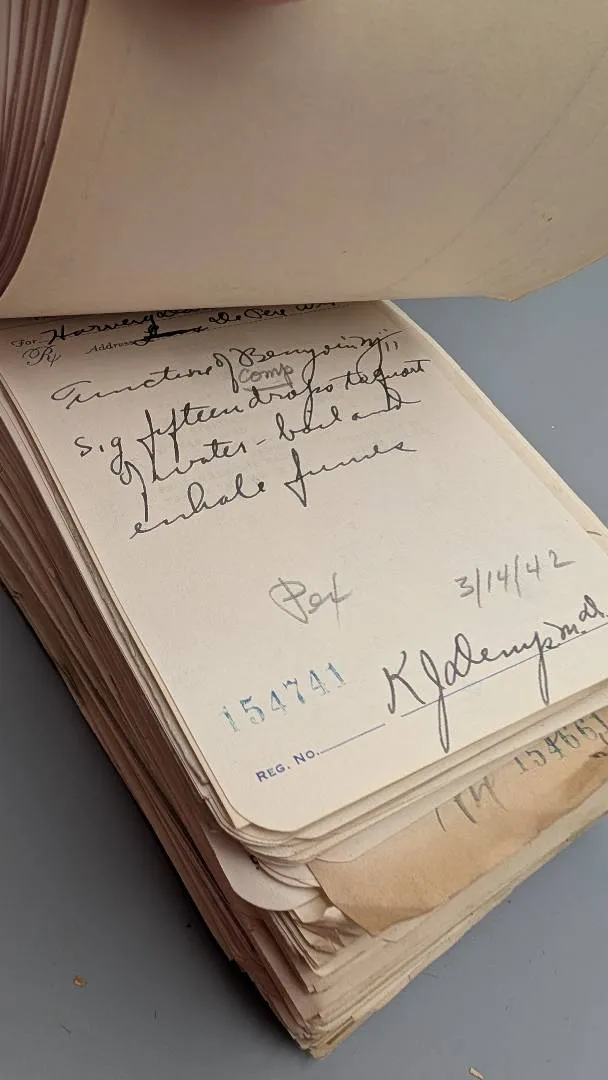 For Harvey
Address De Pere
Rx
Tincture of Benzoin ℥ii
comp
Sig fifteen drops to quart
of water - boil and
enhale fumes
3/14/42
154741
K J Demp M.D.
REG. NO.
15466